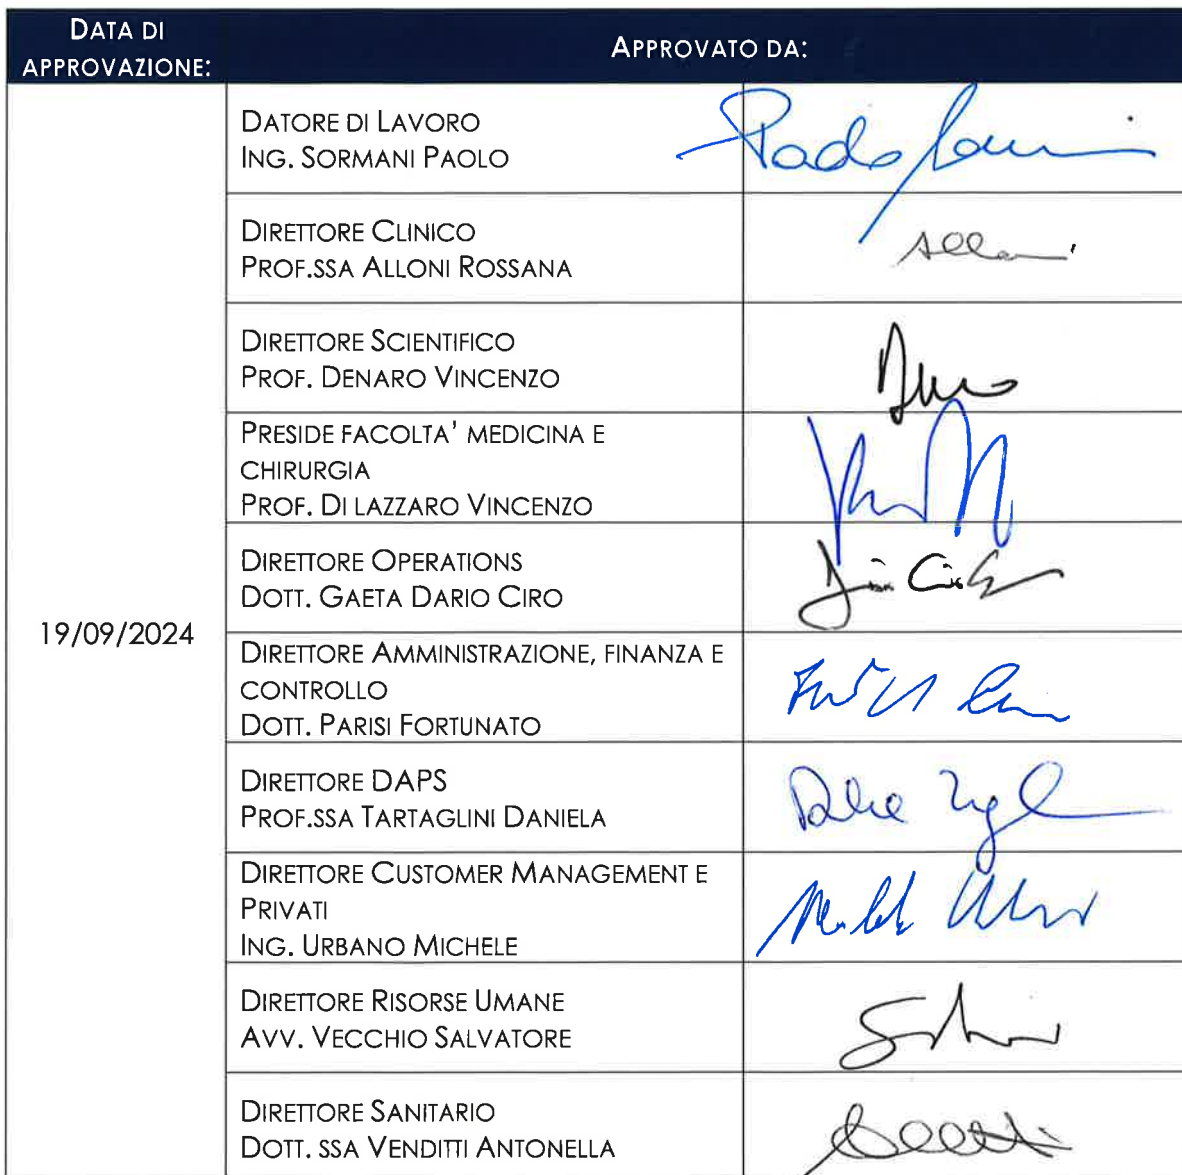 DATA DI
APPROVAZIONE:
APPROVATO DA:
19/09/2024
DATORE DI LAVORO
ING. SORMANI PAOLO
DIRETTORE CLINICO
PROF.SSA ALLONI ROSSANA
DIRETTORE SCIENTIFICO
PROF. DENARO VINCENZO
PRESIDE FACOLTA' MEDICINA E
CHIRURGIA
PROF. DI LAZZARO VINCENZO
DIRETTORE OPERATIONS
DOTT. GAETA DARIO CIRO
DIRETTORE AMMINISTRAZIONE, FINANZA E
CONTROLLO
DOTT. PARISI FORTUNATO
DIRETTORE DAPS
PROF.SSA TARTAGLINI DANIELA
DIRETTORE CUSTOMER MANAGEMENT E
PRIVATI
ING. URBANO MICHELE
DIRETTORE RISORSE UMANE
AVV. VECCHIO SALVATORE
DIRETTORE SANITARIO
DOTT. SSA VENDITTI ANTONELLA